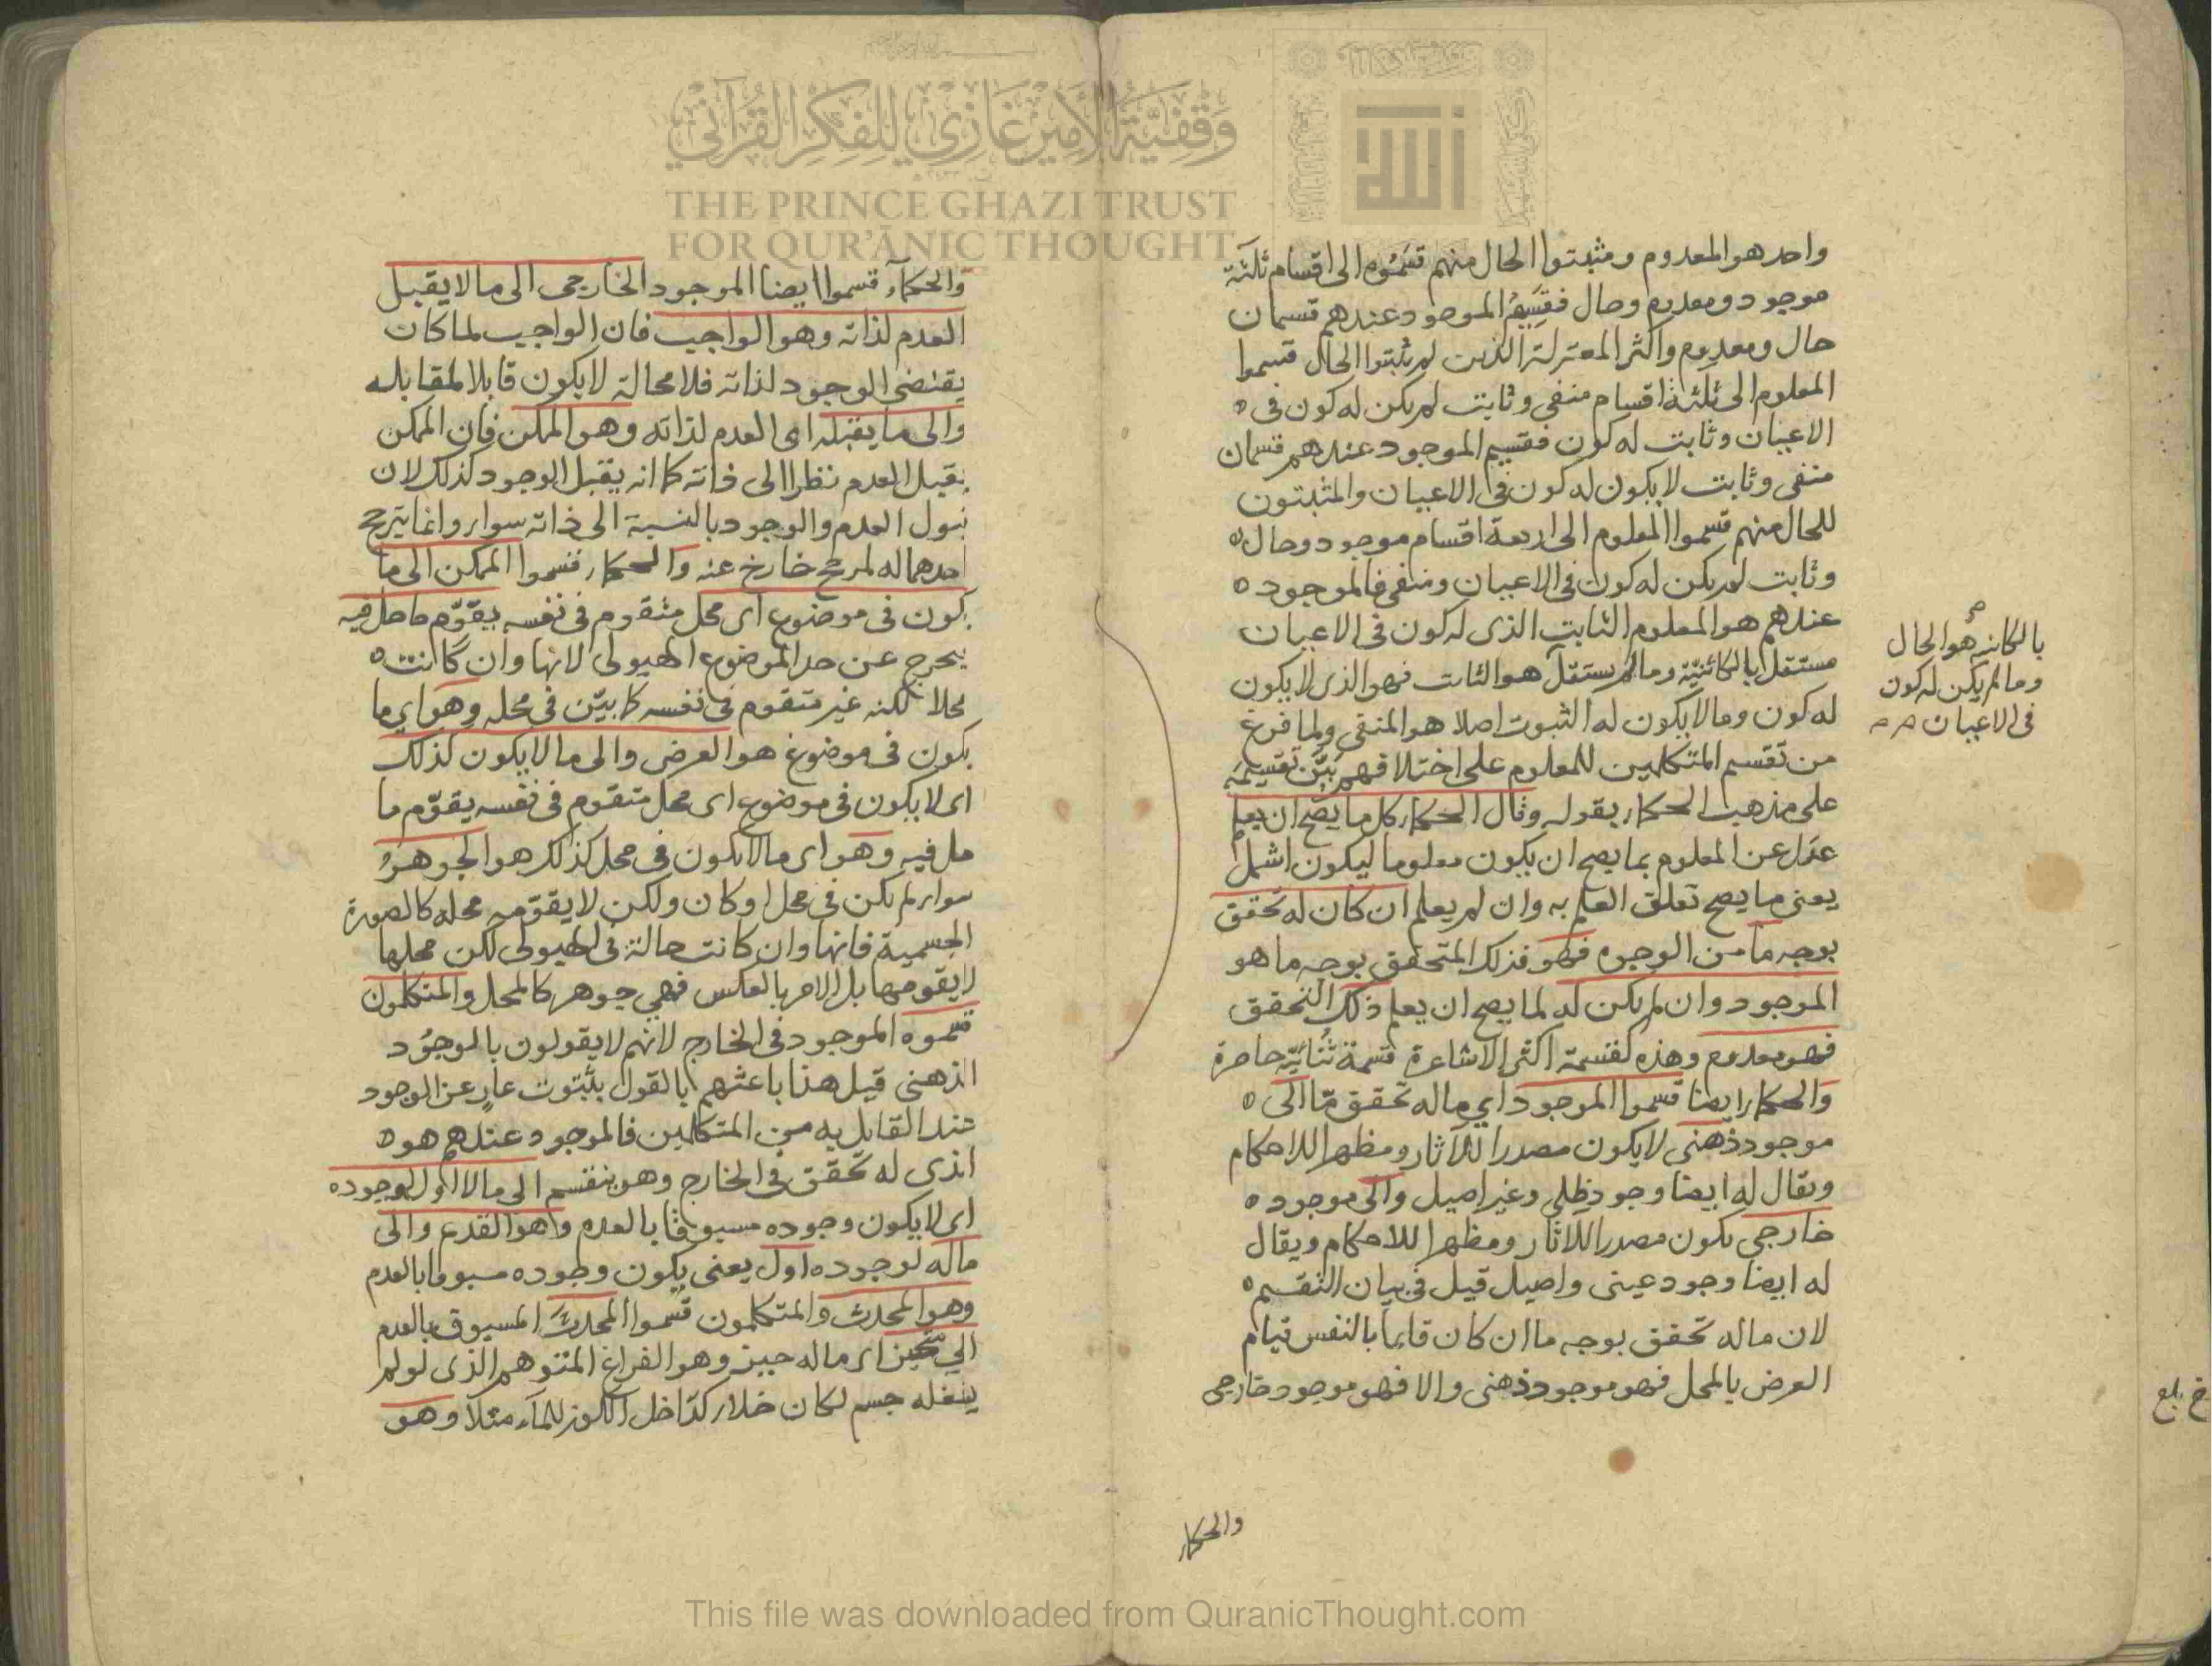 وقفية الأمير غازي للفكر القرآني
THE PRINCE GHAZI TRUST
FOR QUR'ĀNIC THOUGHT
الله
واحد هو المعدوم ومثبتوا الحال منهم قسّموه الى اقسام ثلثة
موجود ومعدوم وحال فقسيم الموجود عندهم قسمان
حال ومعدوم واكثر المعتزلة الذين لم يثبتوا الحال قسموا
المعلوم الى ثلثة اقسام منفي وثابت لم يكن له كون في
الاعيان وثابت له كون فقسيم الموجود عندهم قسمان
منفي وثابت لا يكون له كون في الاعيان والمثبتون
للحال منهم قسموا المعلوم الى اربعة اقسام موجود وحال
وثابت لم يكن له كون في الاعيان ومنفي فالموجود
عندهم هو المعلوم الثابت الذى له كون في الاعيان
مستقل بالكائنيّة وما لم يستقل هو الثابت فهو الذى لا يكون
له كون وما لا يكون له الثبوت اصلا هو المنفي ولما فرغ
من تقسيم المتكلمين للمعلوم على اختلافهم بيّن تقسيمه
على مذهب الحكماء بقوله وقال الحكماء كل ما يصح ان يعلم
عدل عن المعلوم بما يصح ان يكون معلوما ليكون اشمل
يعني ما يصح تعلق العلم به وان لم يعلم ان كان له تحقق
بوجه ما من الوجوه فهو فذلك المتحقق بوجه ما هو
الموجود وان لم يكن له لما يصح ان يعلم ذلك التحقق
فهو معدوم وهذه كقسمة اكثر الاشاعرة قسمة ثنائيّة حاصرة
والحكماء ايضا قسموا الموجود اي ما له تحقق مّا الى
موجود ذهني لا يكون مصدرا للآثار ومظهرا للاحكام
ويقال له ايضا وجود ظلي وغير اصيل والى موجود
خارجي يكون مصدرا للاثار ومظهرا للاحكام ويقال
له ايضا وجود عيني واصيل قيل في بيان التقسيم
لان ماله تحقق بوجه ما ان كان قايما بالنفس قيام
العرض بالمحل فهو موجود ذهني والا فهو موجود خارجي
والحكماء
بالكائنه هو الحال
وما لم يكن له كون
في الاعيان
والحكمآء قسموا ايضا الموجود الخارجي الى ما لا يقبل
العدم لذاته وهو الواجب فان الواجب لما كان
يقتضى الوجود لذاته فلا محالة لا يكون قابلا لمقابله
والى ما يقبله اى العدم لذاته وهو الممكن فان الممكن
يقبل العدم نظرا الى ذاته كما انه يقبل الوجود كذلك لان
قبول العدم والوجود بالنسبة الى ذاته سواء وانما يترجح
احدهما له لمرجح خارج عنه والحكماء قسموا الممكن الى ما
يكون في موضوع اى محل متقوم في نفسه يقوّم ما حل فيه
يخرج عن حد الموضوع الهيولى لانها وان كانت
محلا لكنه غير متقوم في نفسه كما بيّن في محله وهو اي ما
يكون في موضوع هو العرض والى ما لا يكون كذلك
اى لا يكون في موضوع اى محل متقوم في نفسه يقوّم ما
حل فيه وهو اى ما لا يكون في محل كذلك هو الجوهرُ
سواء لم يكن في محل او كان ولكن لا يقوّمه محله كالصورة
الجسمية فانها وان كانت حالة في الهيولى لكن محلها
لا يقومها بل الامر بالعكس فهي جوهر كالمحل والمتكلمون
قسموه الموجود في الخارج لانهم لا يقولون بالوجوُد
الذهنى قيل هذا باعثهم بالقول بثبوت عارٍ عن الوجود
عند القايل به من المتكلمين فالموجود عندهم هو
الذى له تحقق في الخارج وهو ينقسم الى ما لا اول لوجوده
اى لا يكون وجوده مسبوقا بالعدم وهو القديم والى
ماله لوجوده اول يعني يكون وجوده مسبوقا بالعدم
وهو المحدث والمتكلمون قسموا المحدث المسبوق بالعدم
الى متحيّز اى ماله حيز وهو الفراغ المتوهم الذى لو لم
يشغله جسم لكان خلاء كداخل الكوز للمآء مثلا وهو
This file was downloaded from QuranicThought.com